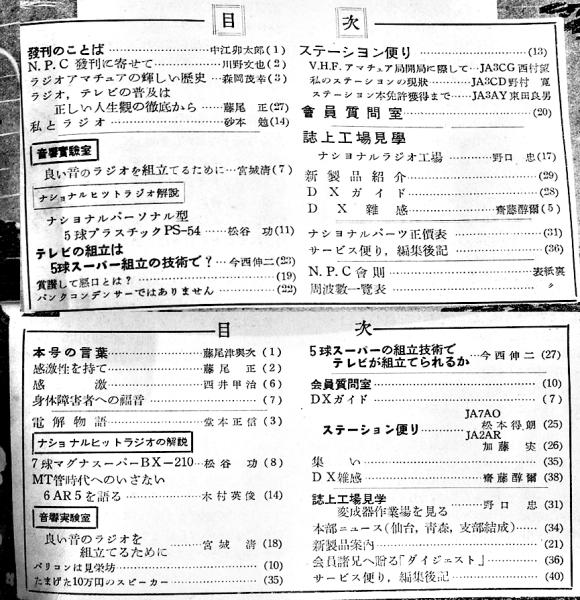 目 次
發刊のことば ……… 中江卯太郎(1)
N.P.C 發刊に寄せて …… 川野文也(2)
ラジオアマチュアの輝しい歴史 … 森岡茂幸(3)
ラジオ,テレビの普及は
正しい人生觀の徹底から … 藤尾 正(27)
私とラジオ ……… 砂本 勉(14)
音響實驗室
良い音のラジオを組立てるために … 宮城清(7)
ナショナルヒツトラジオ解說
ナショナルパーソナル型
5球プラスチックPS-54 … 松谷 功(11)
テレビの組立は
5球スーパー組立の技術で? … 今西伸二(23)
賞讃して惡口とは? ……… (19)
パンクコンデンサーではありません ……… (22)
ステーション便り ……… (13)
V.H.F.アマチュア局開局に際して … JA3CG 西村
私のステーションの現狀 … JA3CD 野村 寛
ステーション本免許獲得まで … JA3AY 東田良男
會員質問室 ……… (20)
誌上工場見學
ナショナルラジオ工場 ……… 野口 忠(17)
新製品紹介 ……… (29)
DXガイド ……… (28)
DX雜感 ……… 齋藤醇爾(5)
ナショナルパーツ正價表 ……… (31)
サービス便り,編集後記 ……… (36)
N.P.C會則 ……… 表紙裏
周波數一覽表 ……… 〃
目 次
本号の言葉 ……… 藤尾津與次(1)
感激性を持て ……… 藤尾 正(2)
感激 ……… 西井甲治(6)
身体障害者への福音 ……… (7)
電解物語 ……… 堂本正信(3)
ナショナルヒットラジオの解說
7球マグナスーパーBX-210 … 松谷 功(8)
MT管時代へのいざない
6AR5を語る ……… 木村英俊(14)
音響実験室
良い音のラジオを
組立てるために ……… 宮城 清(18)
バリコンは見栄坊 ……… (10)
たまげた10万円のスピーカー ……… (35)
5球スーパーの組立技術で
テレビが組立てられるか … 今西伸二(27)
会員質問室 ……… (10)
DXガイド ……… (7)
JA7AO
ステーション便り … 松本得朗(25)
JA2AR
加藤 実(26)
集い ……… (35)
DX雑感 ……… 齋藤醇爾(38)
誌上工場見学
変成器作業場を見る … 野口 忠(31)
本部ニュース(仙台,靑森,支部結成) … (34)
新製品案內 ……… (21)
会員諸兄へ贈る「ダイジェスト」 … (36)
サービス便り,編集後記 ……… (40)